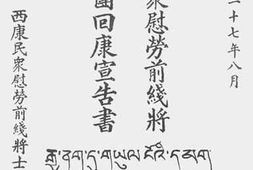 二十七年八月
衆慰勞前綫將
團回康宣告書
西康民衆慰勞前綫將士
རྒྱ་ནག་དུ་གཡུལ་ངོའི་དམག